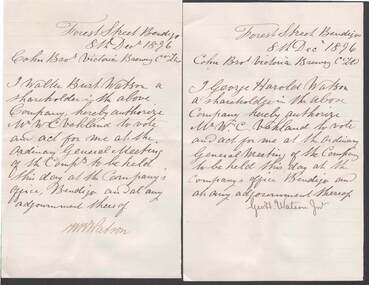 Forest Street Bendigo
8th Decr 1896
Cohn Bros Victoria Brewery Co Ld
I Walter Burt Watson a
shareholder in the above
Company, hereby authorize
Mr W.C. Vahland to vote
and act for me at the
Ordinary General Meeting
of the Compy to be held
this day at the Company's
office, Bendigo and at any
adjournment thereof
WB Watson
Forest Street Bendigo
8th Decr 1896
Cohn Bros Victoria Brewery Co Ld
I George Harold Watson
a shareholder in the above
Company hereby authorize
Mr W.C. Vahland to vote
and act for me at the Ordinary
General Meeting of the Company
to be held this day at the
Company's office Bendigo and
at any adjournment thereof
Geo H. Watson Jnr